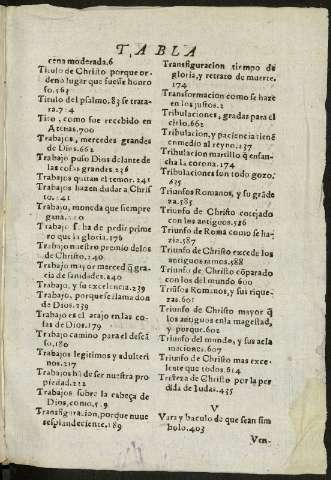 TABLA
cena moderada.6
Titulo de Christo porque or-
deno lugar que fuesse honro
so.563
Titulo del psalmo.83 se trata-
ra.714
Tito, como fue recebido en
Atenas.700
Trabajos, mercedes grandes
de Dios.662
Trabajo puso Dios delante de
las cosas grandes.236
Trabajos quitan el temor.241
Trabajos hazen dudar a Chris
to.141
Trabajo, moneda que siempre
gana.220
Trabajo s. ha de pedir prime
ro que la gloria.176
Trabajo nuestro premio de los
de Christo.240
Trabajo mayor merced q̃ gra-
cia de sanidades.240
Trabajo, y su excelencia.239
Trabajo, porque se llama don
de Dios.239
Trabajo es el atajo en las co-
sas de Dios.179
Trabajo camino para el descã
so.180
Trabajos legitimos y adulteri
nos.217
Trabajos hã de ser nuestra pro
piedad.222
Trabajos sobre la cabeça de
Dios, como.519
Transfiguracion, porque nuue
resplandeciente.189
Transfiguracion tiempo de
gloria, y retrato de muerte.
174
Transformacion como se haze
en los justos.2
Tribulaciones, gradas para el
cielo.662
Tribulacion, y paciencia tiene
en medio al reyno.237
Tribulacion martillo q̃ ensan-
cha la corona.174
Tribulaciones son todo gozo.
635
Triunfos Romanos, y su grãde
za.585
Triunfo de Christo cotejado
con los antiguos.586
Triunfo de Roma como se ha-
zia.587
Triunfo de Christo excede los
antiguos ramos.588
Triunfo de Christo cõparado
con los del mundo 600
Triũfos Romanos, y sus rique-
zas.601
Triunfo de Christo mayor q̃
los antiguos en la magestad,
y porque.602
Triunfo del mundo, y sus acla
maciones.607
Triunfo de Christo mas exce-
lente que todos.614
Tristeza de Christo por la per
dida de Iudas.435
V
Vara y baculo de que sean sim
bolo.403
Ven-